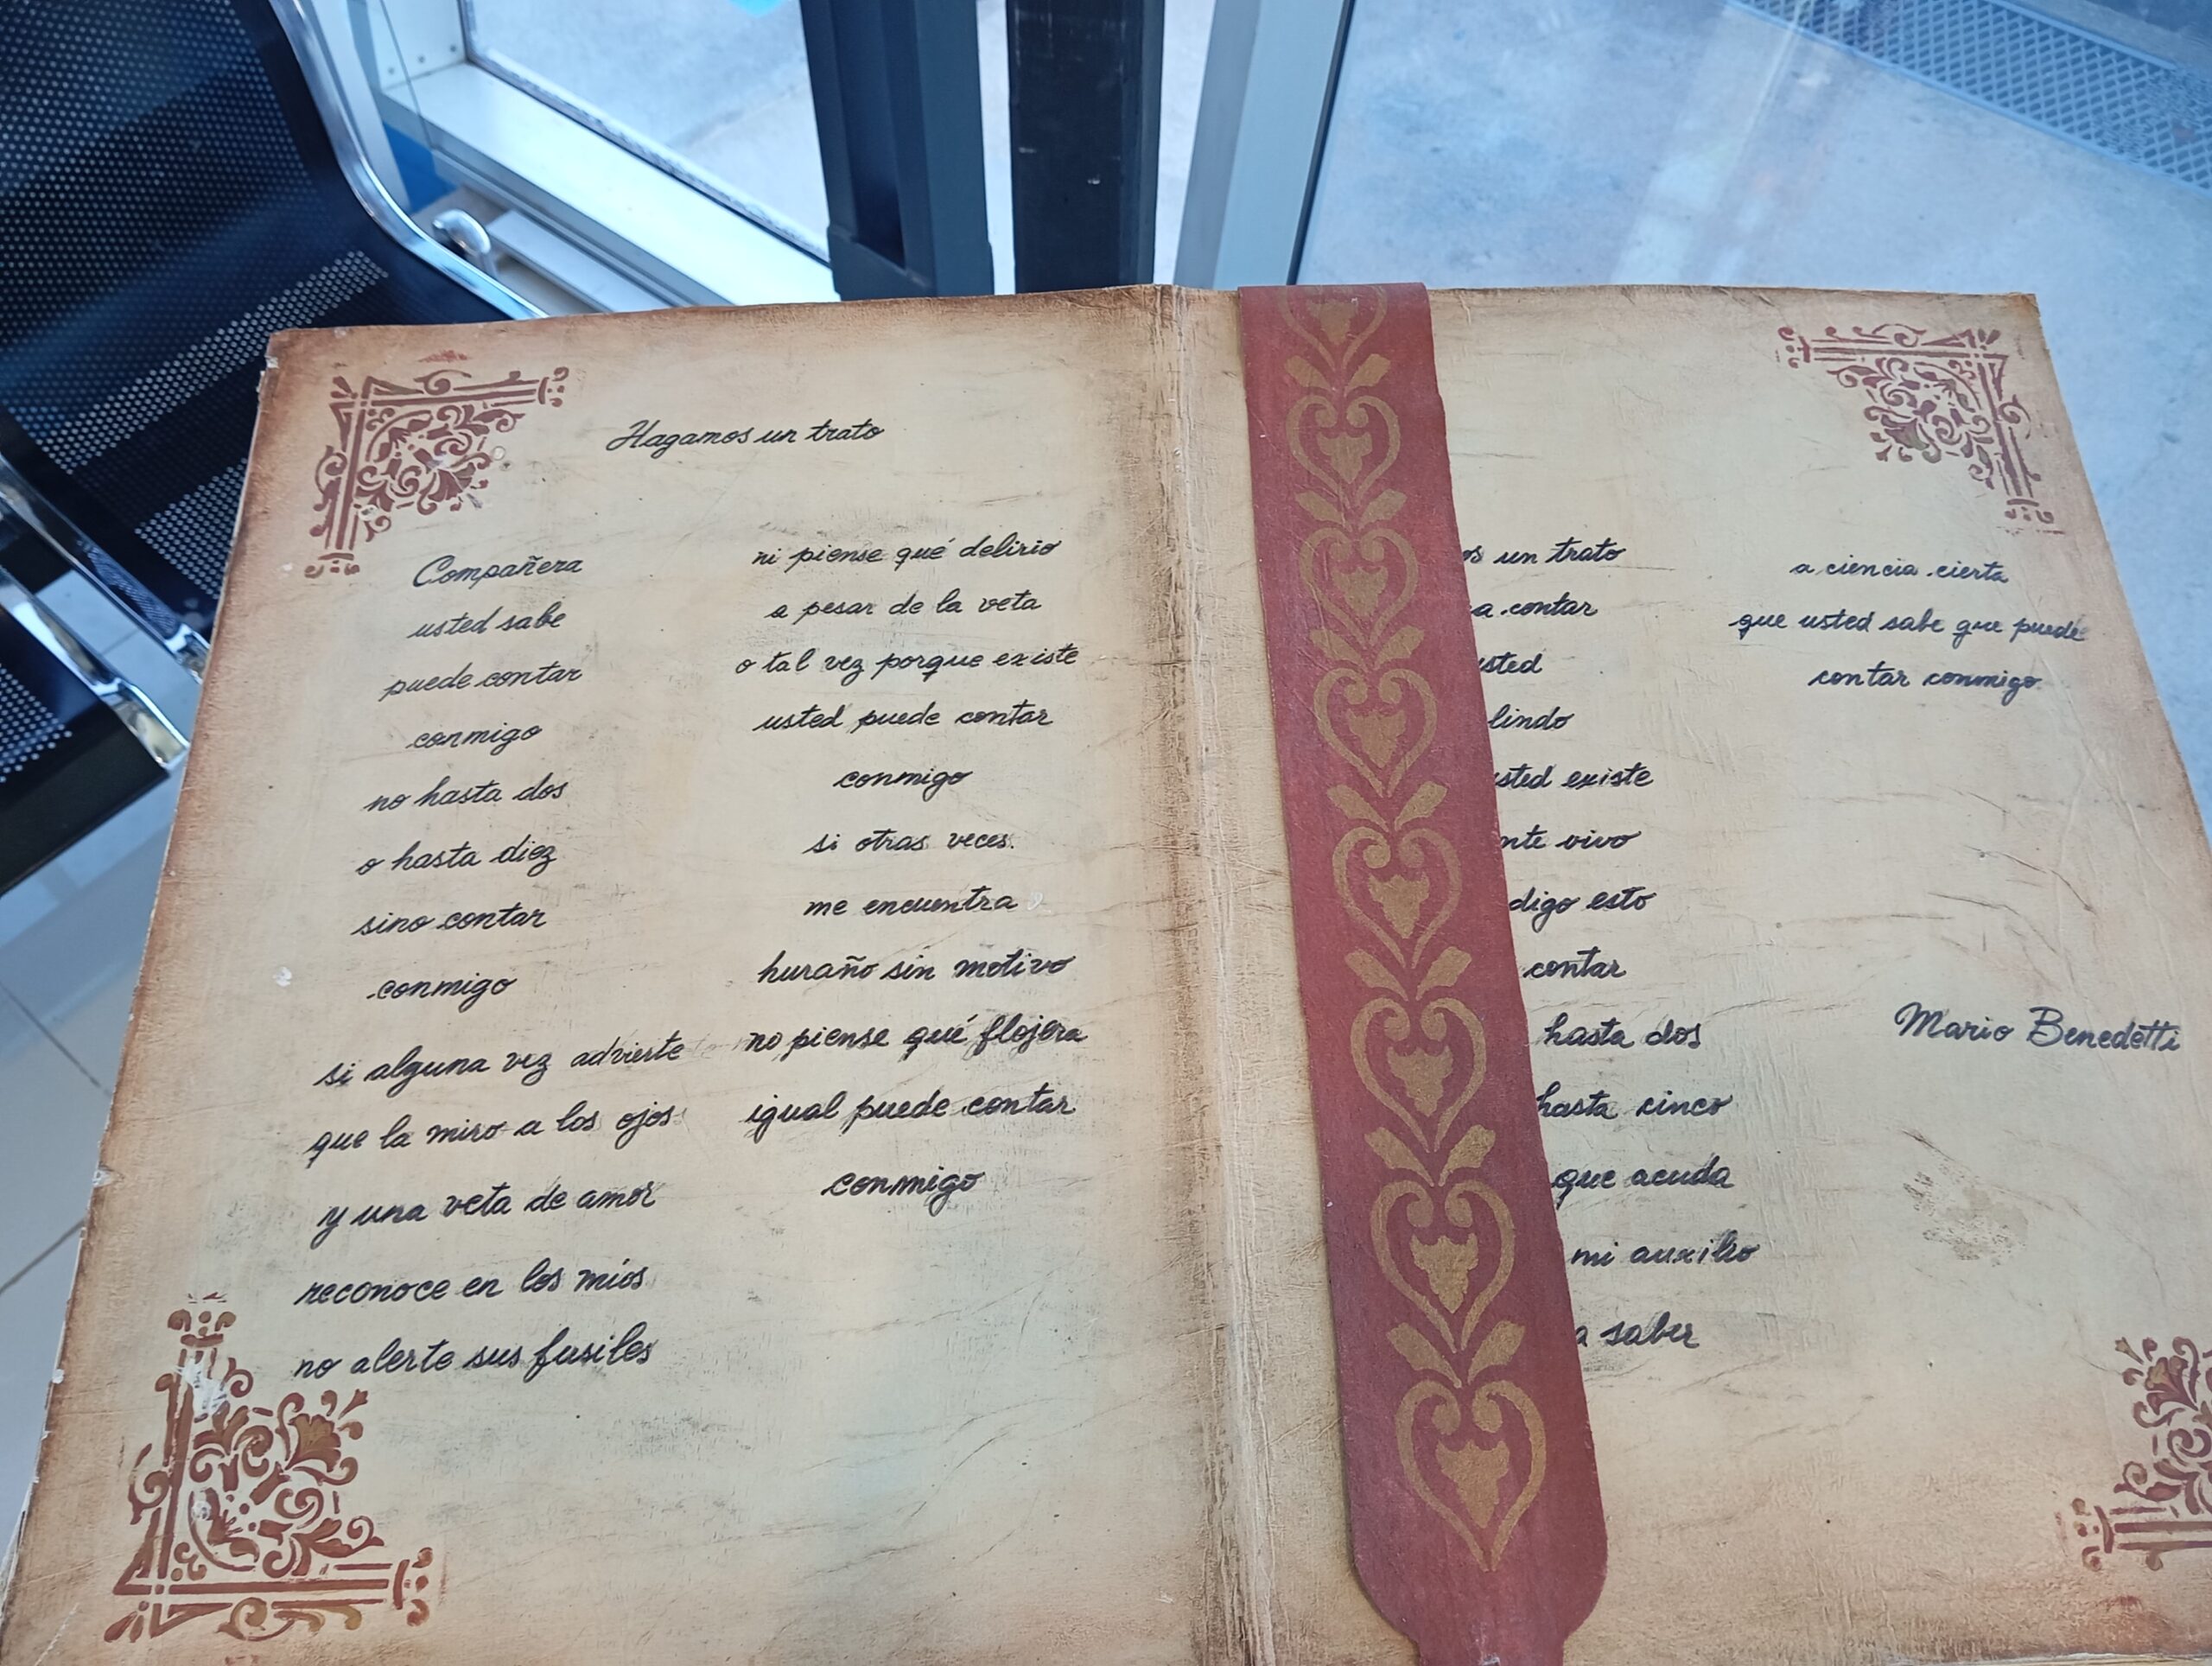 Hagamos un trato
Compañera
usted sabe
puede contar
conmigo
no hasta dos
o hasta diez
sino contar
conmigo
si alguna vez advierte
que la miro a los ojos
y una veta de amor
reconoce en los míos
no alerte sus fusiles
ni piense qué delirio
a pesar de la veta
o tal vez porque existe
usted puede contar
conmigo
si otras veces
me encuentra
huraño sin motivo
no piense qué flojera
igual puede contar
conmigo
os un trato
a contar
usted
lindo
usted existe
nte vivo
digo esto
contar
hasta dos
hasta cinco
que acuda
mi auxilio
a saber
a ciencia cierta
que usted sabe que puede
contar conmigo
Mario Benedetti